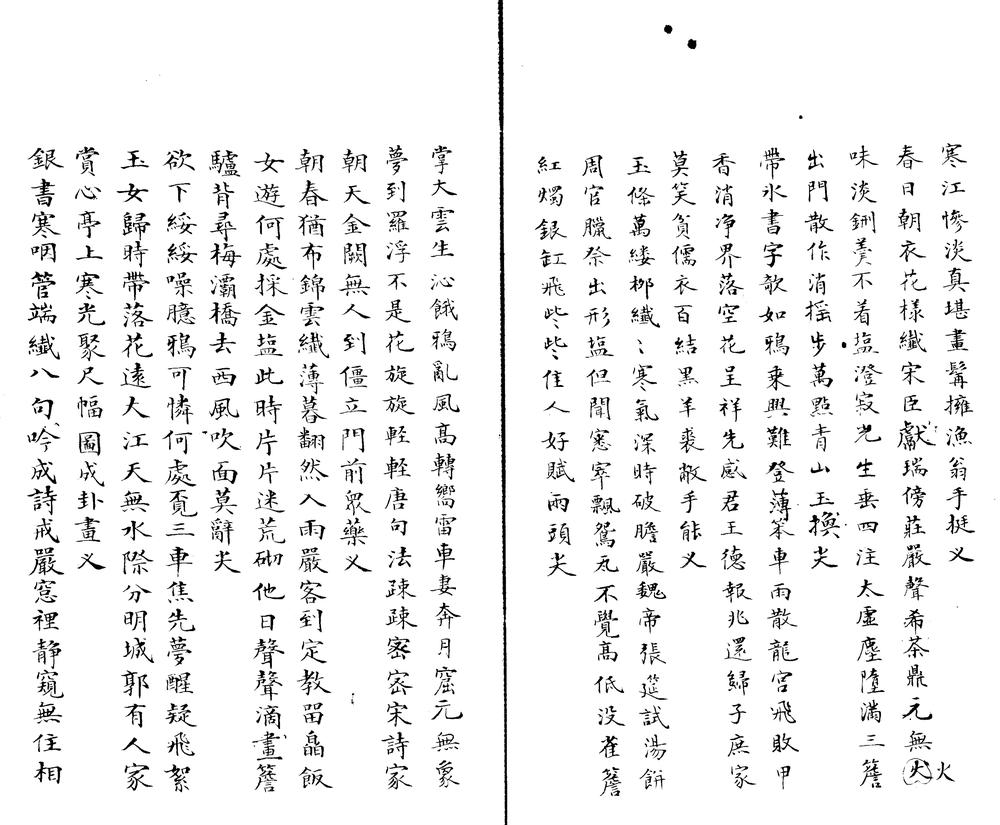 寒江慘淡真堪畫髯擁漁翁手挺义
春日朝衣花樣纖宋臣獻瑞傍莊嚴聲希茶鼎元無火
味淡鉶羮不着塩澄寂光生垂四注太虛塵墮满三簷
出門散作消摇步萬點青山玉換尖
帶氷書字欹如鴉乗興難登薄笨車雨散龍宫飛敗甲
香消净界落空花呈祥先感君王德報兆還歸子庶家
莫笑貧儒衣百結黒羊裘敝手能义
玉條萬縷栁纖〻寒氣深時破膽嚴魏帝張筵試湯餅
周官臘祭出形塩但聞窸窣飄鴛瓦不覺髙低没雀簷
紅燭銀缸飛些些佳人好賦兩頭尖
掌大雲生沁餓鴉亂風髙轉嚮雷車妻奔月窟元無象
夢到羅浮不是花旋旋輕輕唐句法疎疎密密宋詩家
朝天金闕無人到僵立門前衆藥义
朝春猶布錦雲纖薄暮翻然入雨嚴客到定教留晶飯
女遊何處採金塩此時片片迷荒砌他日聲聲滴畫簷
驢背尋梅灞橋去西風吹面莫辭尖
欲下綏綏噪臆鴉可憐何處覔三車焦先夢醒疑飛絮
玉女歸時帶落花遠大江天無水際分明城郭有人家
賞心亭上寒光聚尺幅圖成卦畫义
銀書寒咽管端纖八句吟成詩戒嚴窓裡静窺無住相